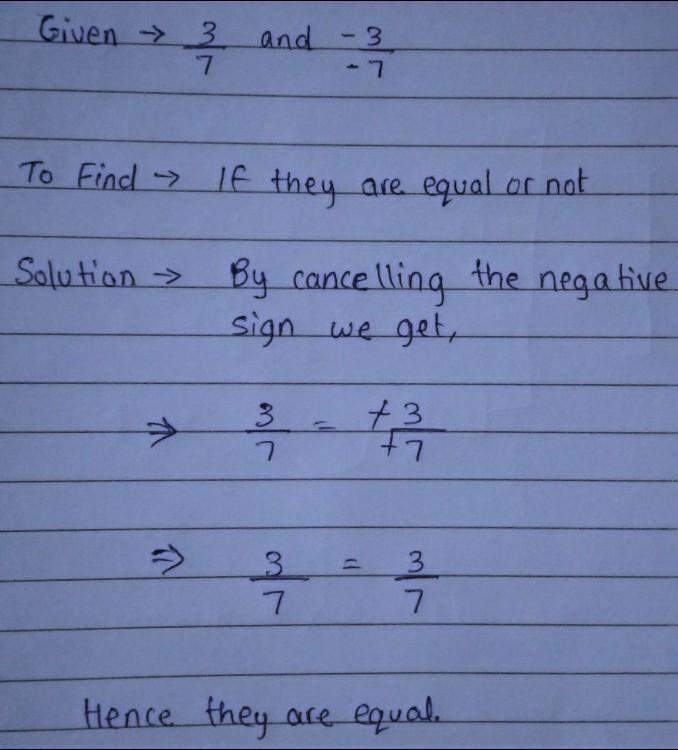 Given → 3/7 and -3/-7
To Find → If they are equal or not
Solution → By cancelling the negative
sign we get,
⇒ 3/7 = -̸3/-̸7
⇒ 3/7 = 3/7
Hence they are equal.